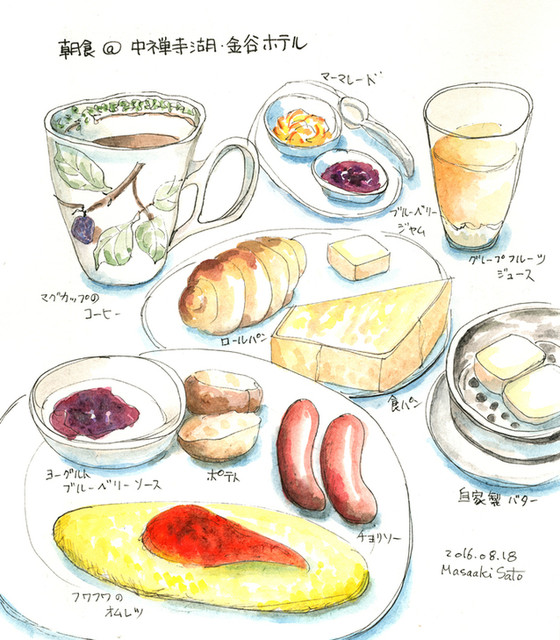 朝食 @ 中禅寺湖・金谷ホテル
マーマレード
ブルーベリー
ジャム
グレープフルーツ
ジュース
マグカップの
コーヒー
ロールパン
食パン
ヨーグルト
ブルーベリーソース
ポテト
チョリソー
自家製バター
フワフワの
オムレツ
2016.08.18
Masaaki Sato